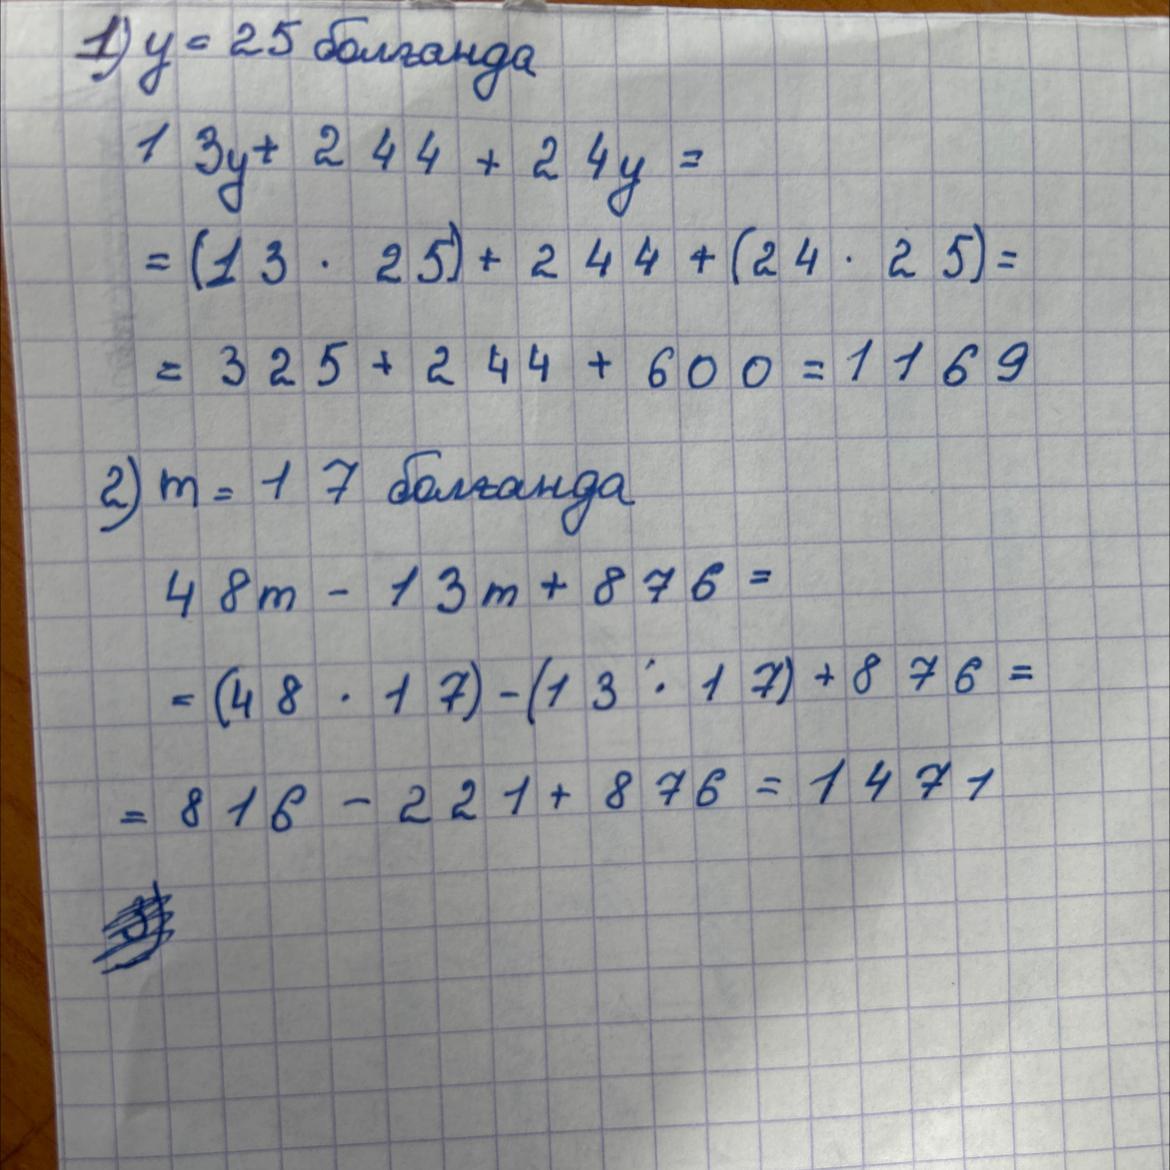 1) y = 25 болғанда
13y + 244 + 24y =
= (13 · 25) + 244 + (24 · 25) =
= 325 + 244 + 600 = 1169
2) m = 17 болғанда
48m - 13m + 876 =
= (48 · 17) - (13 · 17) + 876 =
= 816 - 221 + 876 = 1471